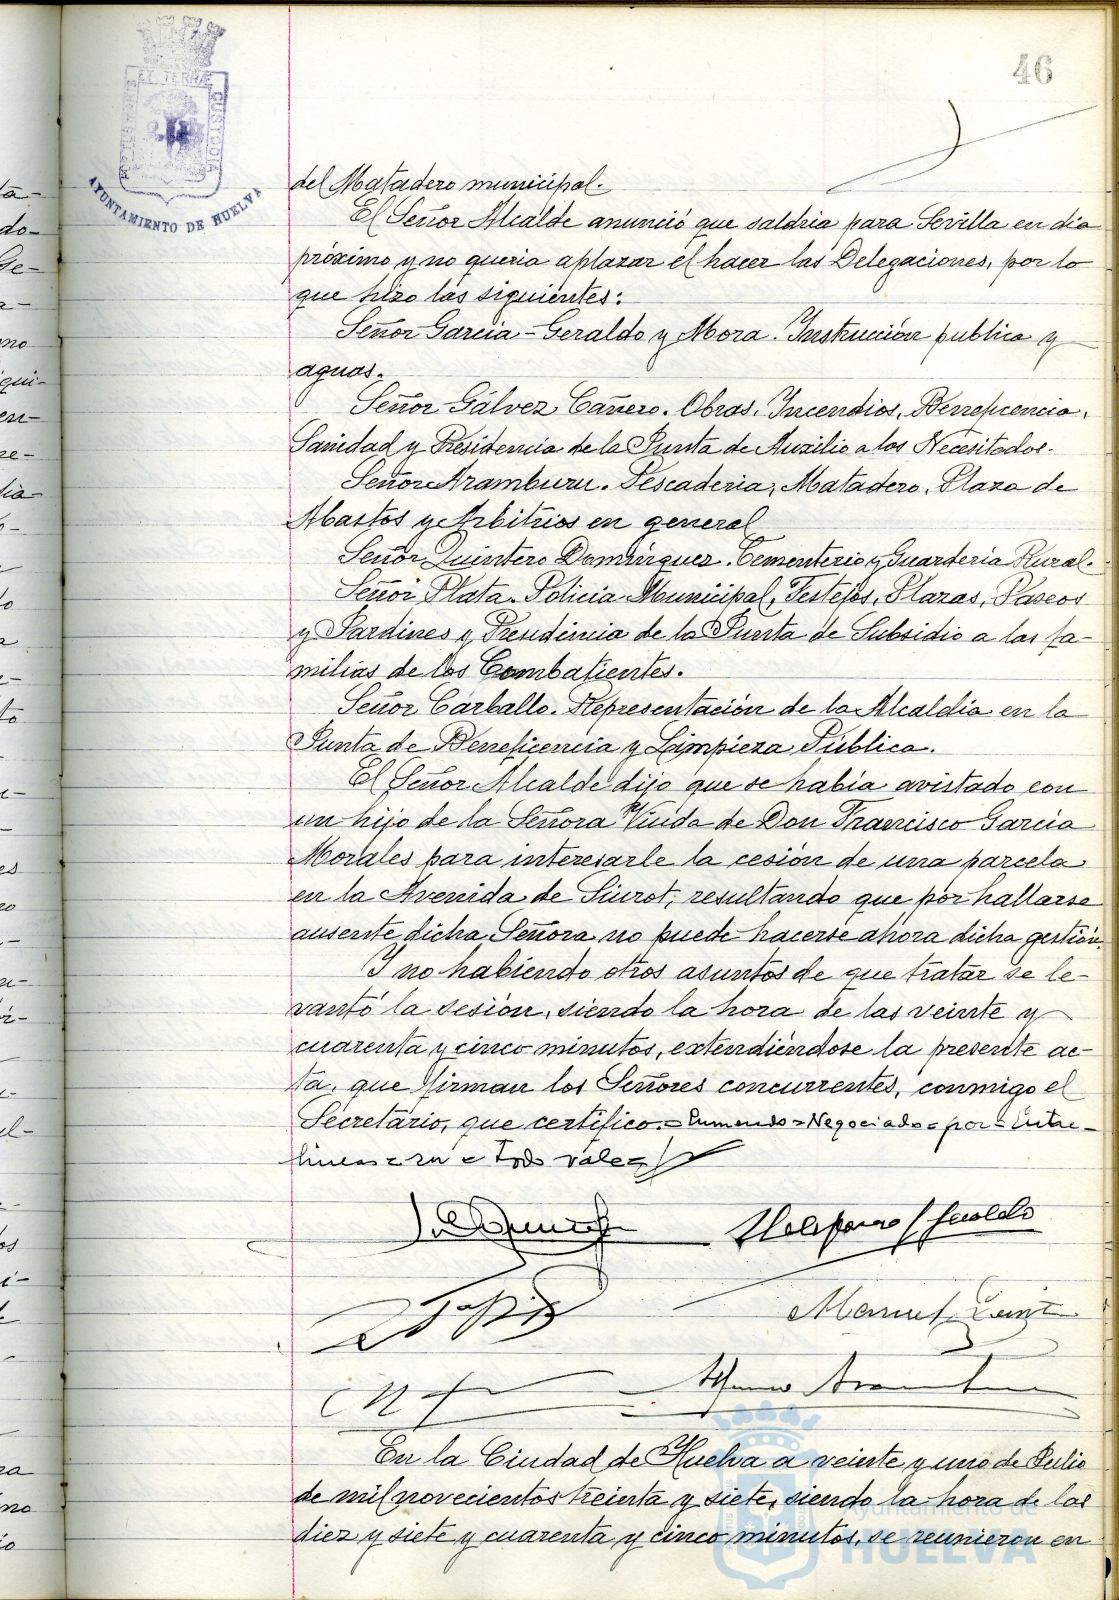 46
ET TERRÆ
CUSTODIA
AYUNTAMIENTO DE HUELVA
del Matadero municipal.
El Señor Alcalde anunció que saldria para Sevilla en dia
próximo y no queria aplazar el hacer las Delegaciones, por lo
que hizo las siguientes:
Señor Garcia-Geraldo y Mora. Instrucción publica y
aguas.
Señor Gálvez Cañero. Obras, Incendios, Beneficencia,
Sanidad y Presidencia de la Junta de Auxilio a los Necesitados.
Señor Aramburu. Pescaderia, Matadero, Plaza de
Abastos y Arbitrios en general
Señor Quintero Domínguez. Cementerio y Guarderia Rural.
Señor Plata. Policia Municipal, Festejos, Plazas, Paseos
y Jardines y Presidencia de la Junta de Subsidio a las fa-
milias de los Combatientes.
Señor Carballo. Representación de la Alcaldia en la
Junta de Beneficencia y Limpieza Pública.
El Señor Alcalde dijo que se habia avistado con
un hijo de la Señora Viuda de Don Francisco Garcia
Morales para interesarle la cesión de una parcela
en la Avenida de Siurot, resultando que por hallarse
ausente dicha Señora no puede hacerse ahora dicha gestión.
Y no habiendo otros asuntos de que tratar se le-
vantó la sesión, siendo la hora de las veinte y
cuarenta y cinco minutos, extendiéndose la presente ac-
ta, que firman los Señores concurrentes, conmigo el
Secretario, que certifico.=Enmendo=Negociado=por=Entre-
lineas= =Todo vale=
Manuel
En la Ciudad de Huelva a veinte y uno de Julio
de mil novecientos treinta y siete, siendo la hora de las
diez y siete y cuarenta y cinco minutos, se reunieron en
Ayuntamiento de
HUELVA